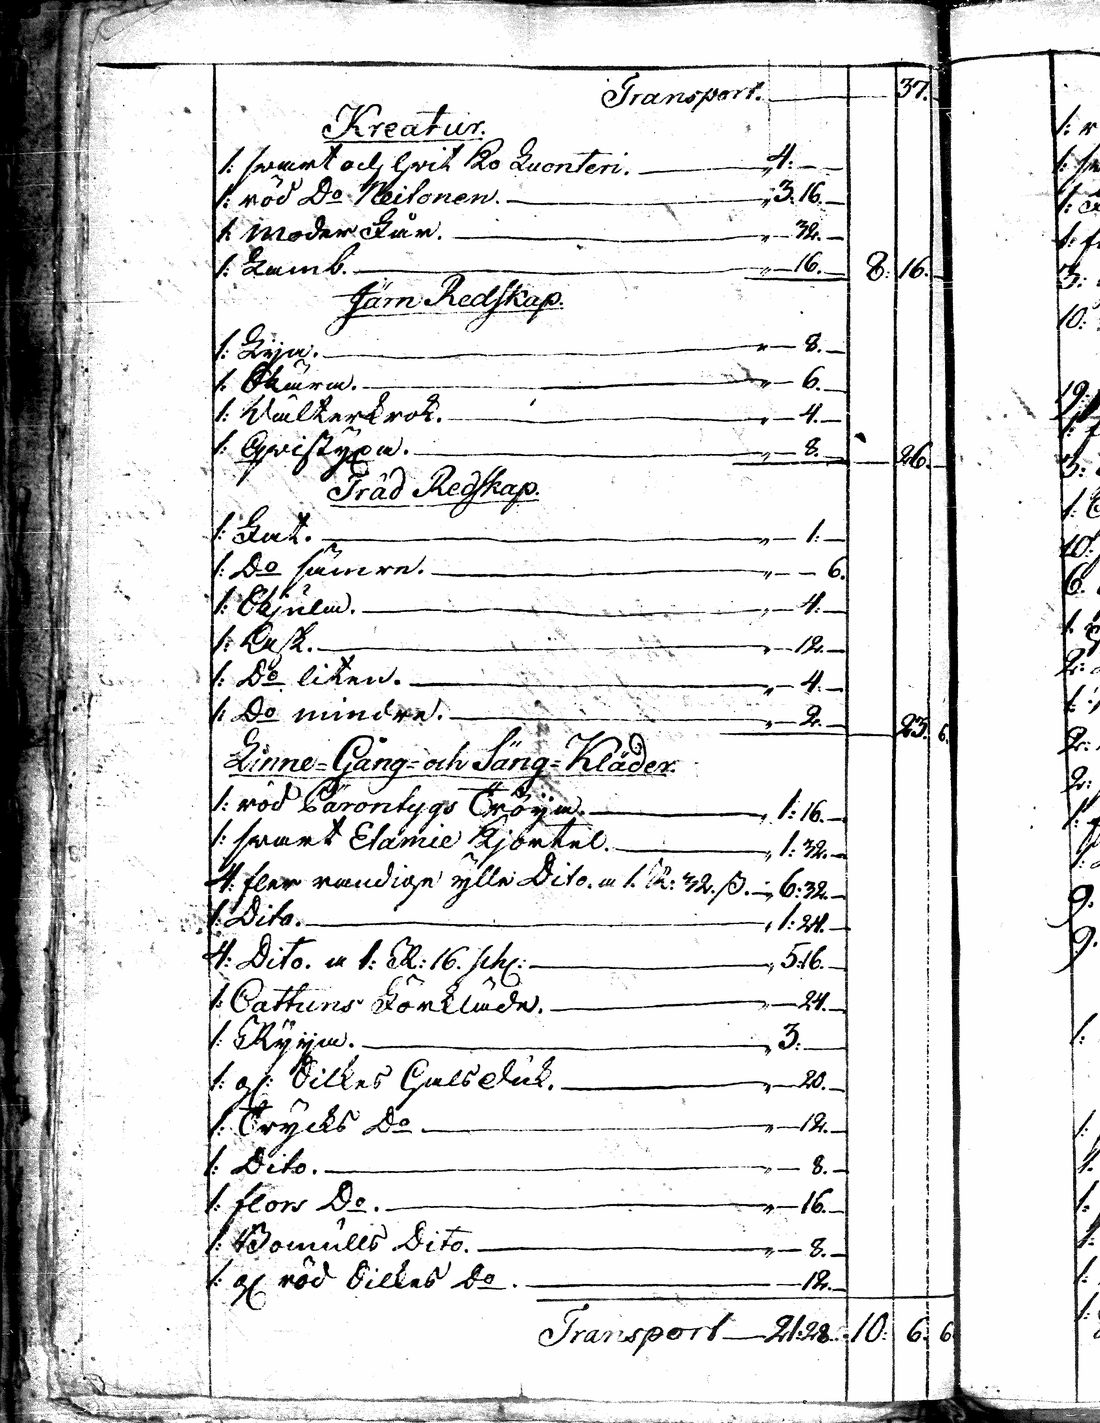 Transport. 37.
Kreatur.
1: svart och hvit Ko Luonteri. 4:
1: röd Do Meilonen. 3:16.
1: Moder Får. 32.
1: Lamb. 16. 8: 16.
Järn Redskap.
1: Lya. 8.
1: Skära. 6.
1: krok. 4.
1: 8. 26.
Träd Redskap.
1: Kat. 1:
1: Do sämre. 6.
1: Skjula. 4.
1: Kask. 12.
1: Do liten. 4.
1: Do mindre. 2. 23. 6.
Linne-Gång-och Säng-Kläder.
1: röd Päronlygs Tröya. 1:16.
1: svart Etamie Kjortel. 1:32.
4: fler randige ylle Dito. a 1. R: 32. β. 6:32.
1: Dito. 1:24.
4: Dito. a 1: R: 16. sch: 5:16.
1: Cattuns Förkläde. 24.
1: Ryya. 3:
1: gl: Silkes Halsduk. 20.
1: Trycks Do 12.
1: Dito. 8.
1: flors Do. 16.
1: Bomulls Dito. 8.
1: gl röd Silkes Do. 12.
Transport 21:28. 10: 6. 6.